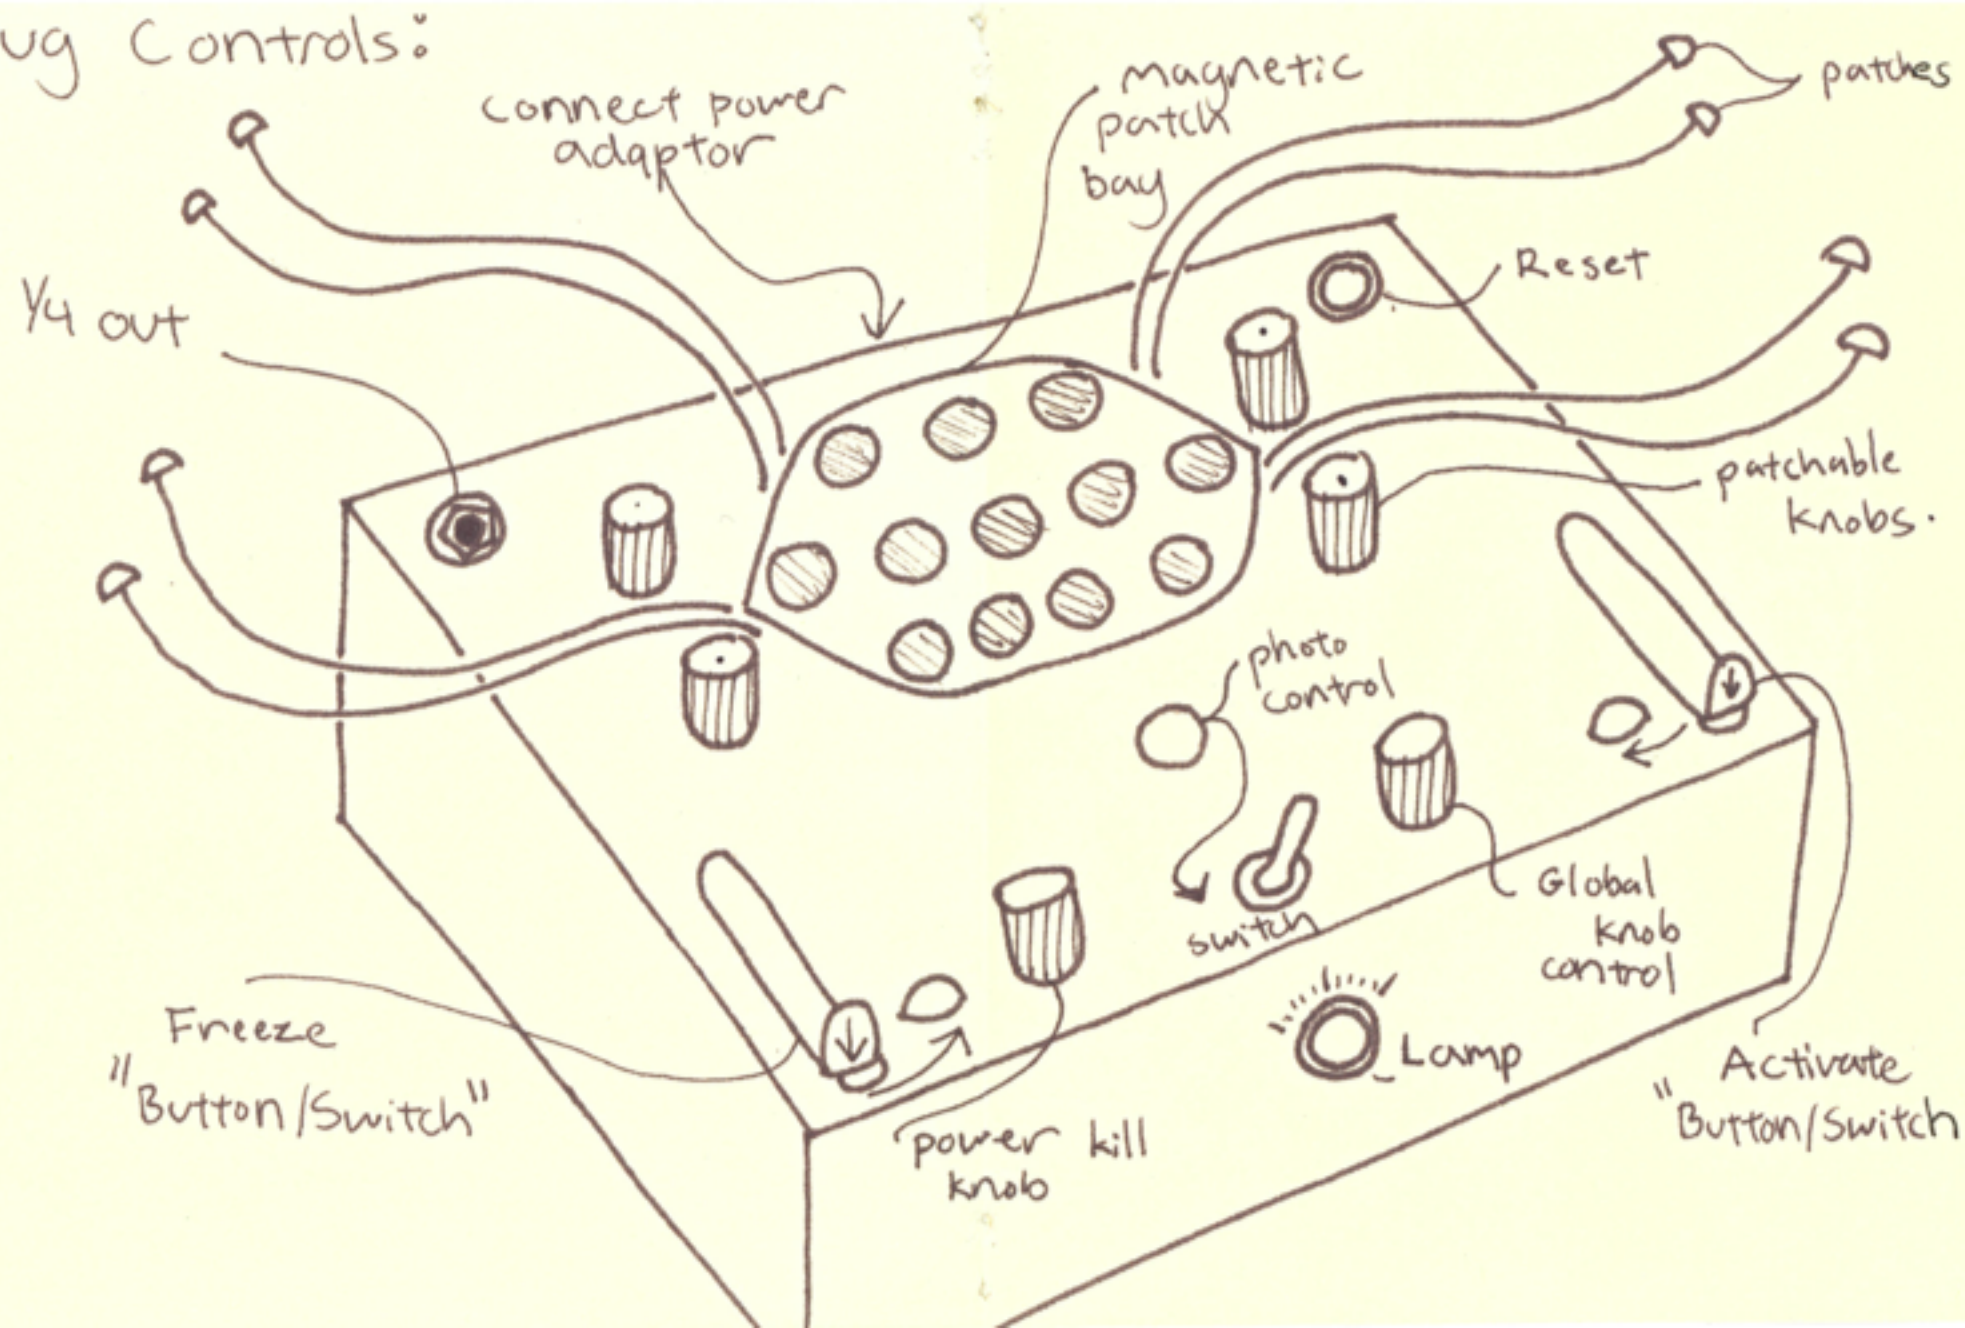 ug Controls:
connect power
adaptor
magnetic
patch
bay
patches
Reset
1/4 out
patchable
knobs.
photo
control
switch
Global
knob
control
Freeze
"Button/Switch"
power kill
knob
Lamp
Activate
"Button/Switch